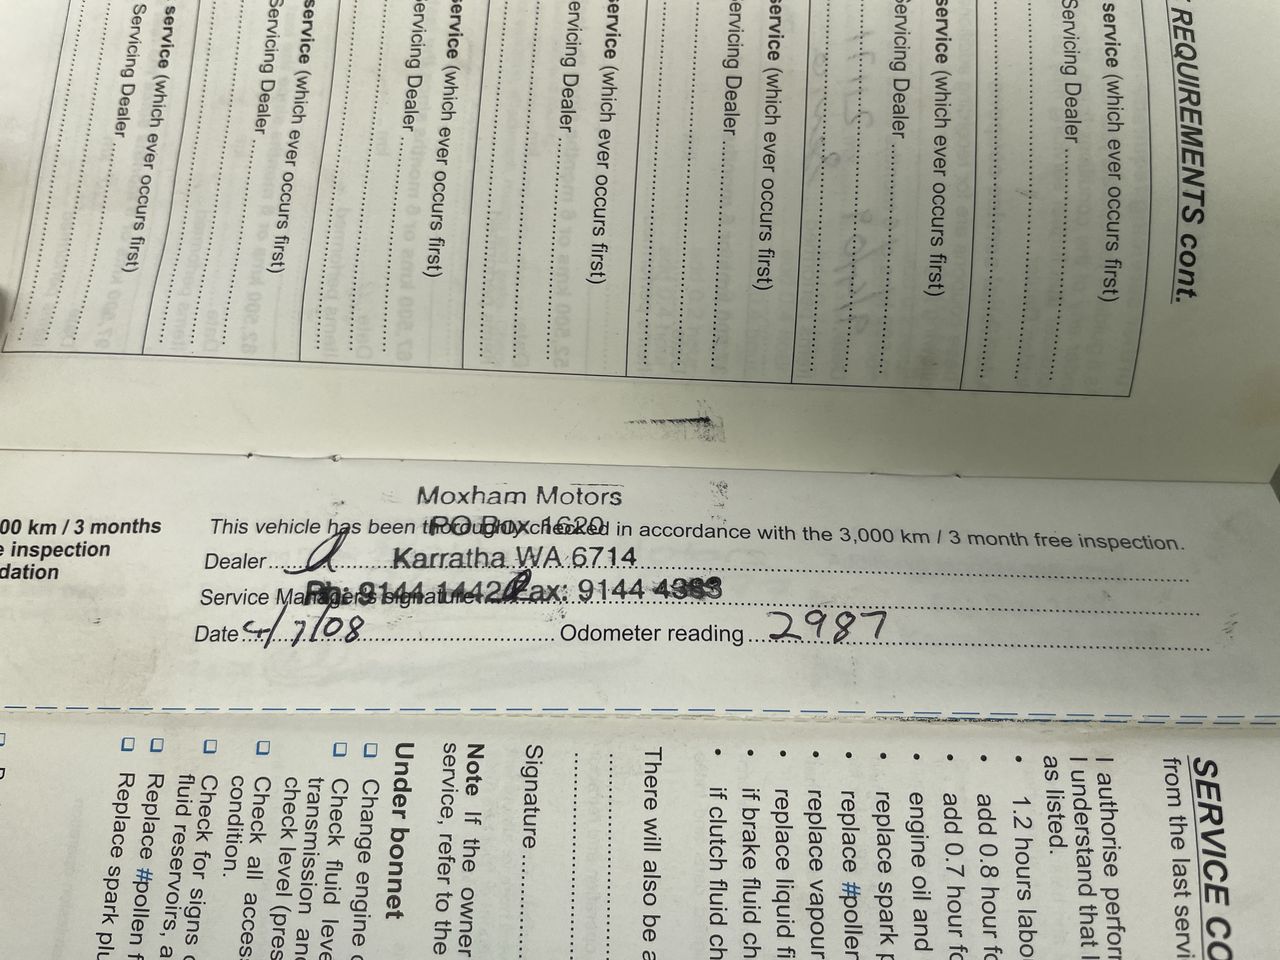 REQUIREMENTS cont.
service (which ever occurs first)
Servicing Dealer
service (which ever occurs first)
Servicing Dealer
service (which ever occurs first)
Servicing Dealer
service (which ever occurs first)
Servicing Dealer
service (which ever occurs first)
Servicing Dealer
service (which ever occurs first)
Servicing Dealer
service (which ever occurs first)
Servicing Dealer
Moxham Motors
PO Box 1620
Karratha WA 6714
Ph: 9144 1442 Fax: 9144 4383
00 km / 3 months
e inspection
dation
This vehicle has been thoroughly checked in accordance with the 3,000 km / 3 month free inspection.
Dealer
Service Manager's signature
Date 4/7/08 Odometer reading 2987
SERVICE CO
from the last servi
I authorise perform
I understand that I
as listed.
• 1.2 hours labo
• add 0.8 hour fo
• add 0.7 hour fo
• engine oil and
• replace spark p
• replace #pollen
• replace vapour
• replace liquid fi
• if brake fluid ch
• if clutch fluid ch
There will also be a
Signature
Note If the owner
service, refer to the
Under bonnet
Change engine
Check fluid leve
transmission and
check level (pres
Check all access
condition.
Check for signs
fluid reservoirs, a
Replace #pollen f
Replace spark plu